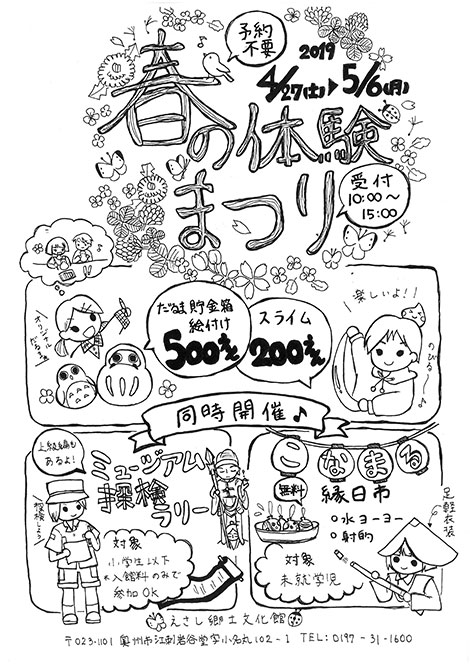 予約
不要
2019
4/27(土)▶5/6(月)
春の体験
まつり
受付
10:00～
15:00
オリジナル
だるま
だるま貯金箱
絵付け
500えん
スライム
200えん
楽しいよ!!
のびる～
同時開催♪
上級編も
あるよ!
探検しよう
ミュージアム
探検
ラリー
対象
小学生以下
*入館料のみで
参加OK
こなまる
無料
縁日市
○水ヨーヨー
○射的
足軽衣装
対象
未就学児
えさし郷土文化館
〒023-1101 奥州市江刺岩谷堂字小名丸102-1 TEL:0197-31-1600